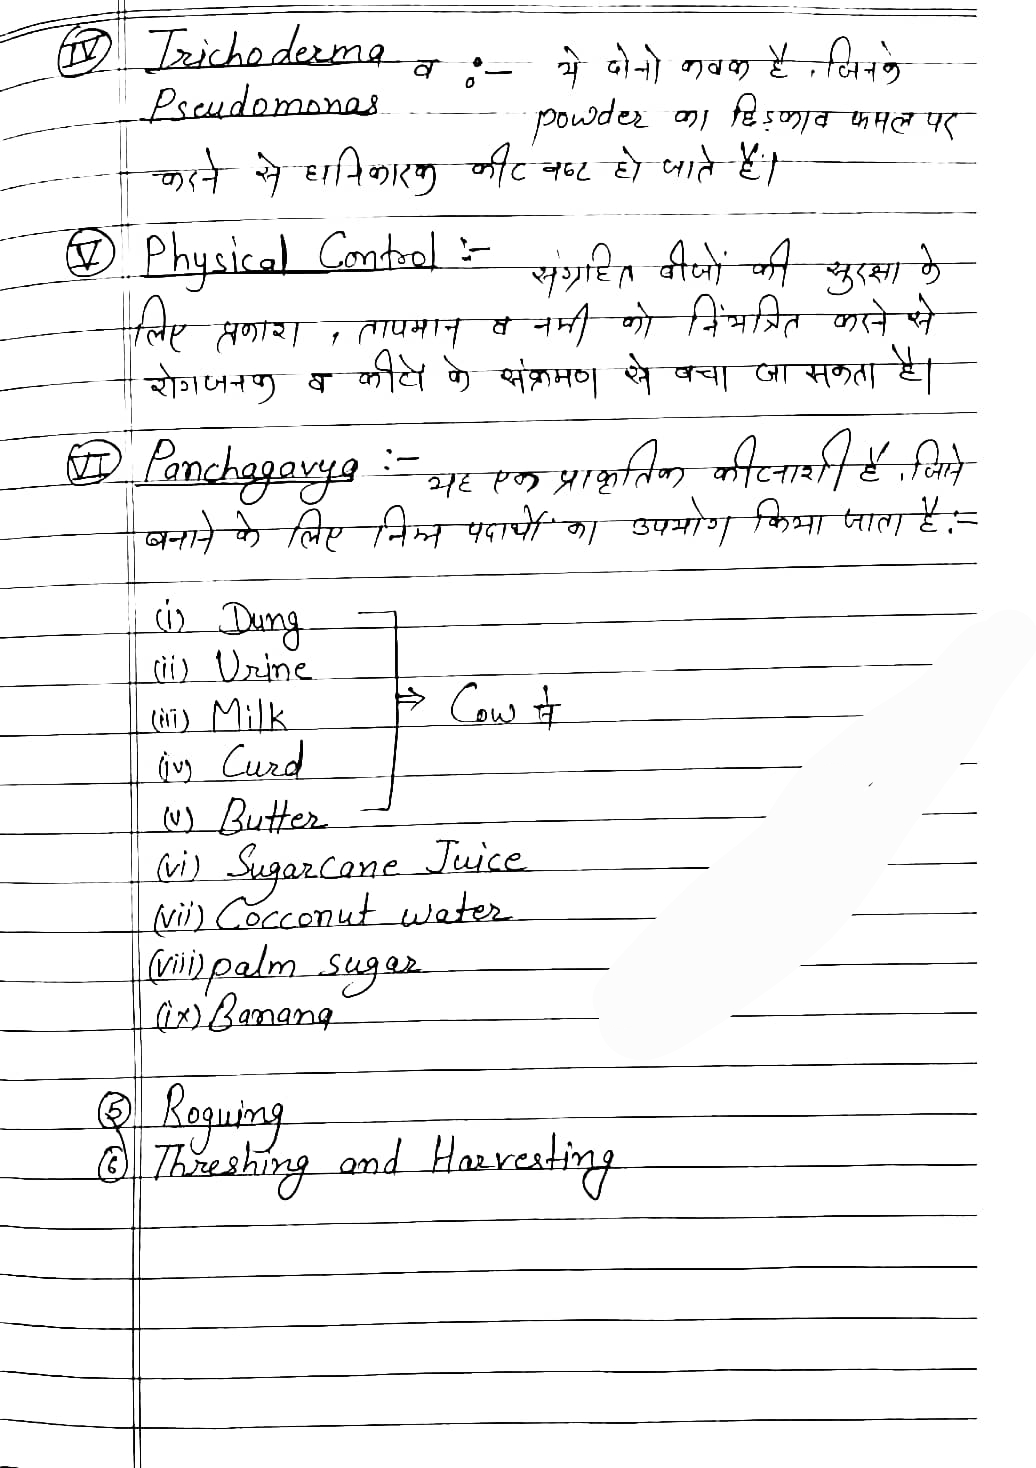 (IV) Trichoderma व :- ये दोनो कवक है, जिनके
Pseudomonas powder का छिड़काव फसल पर
करने से हानिकारक कीट नष्ट हो जाते हैं।
(V) Physical Control :- संग्रहित बीजों की सुरक्षा के
लिए प्रकाश, तापमान व नमी को नियंत्रित करने से
रोगजनक व कीटों के संक्रमण से बचा जा सकता है।
(VI) Panchagavya :- यह एक प्राकृतिक कीटनाशी है, जिसे
बनाने के लिए निम्न पदार्थों का उपयोग किया जाता है :-
(i) Dung
(ii) Urine
(iii) Milk ⇒ Cow से
(iv) Curd
(v) Butter
(vi) Sugarcane Juice
(vii) Cocconut water
(viii) palm sugar
(ix) Banana
(5) Roguing
(6) Threshing and Harvesting